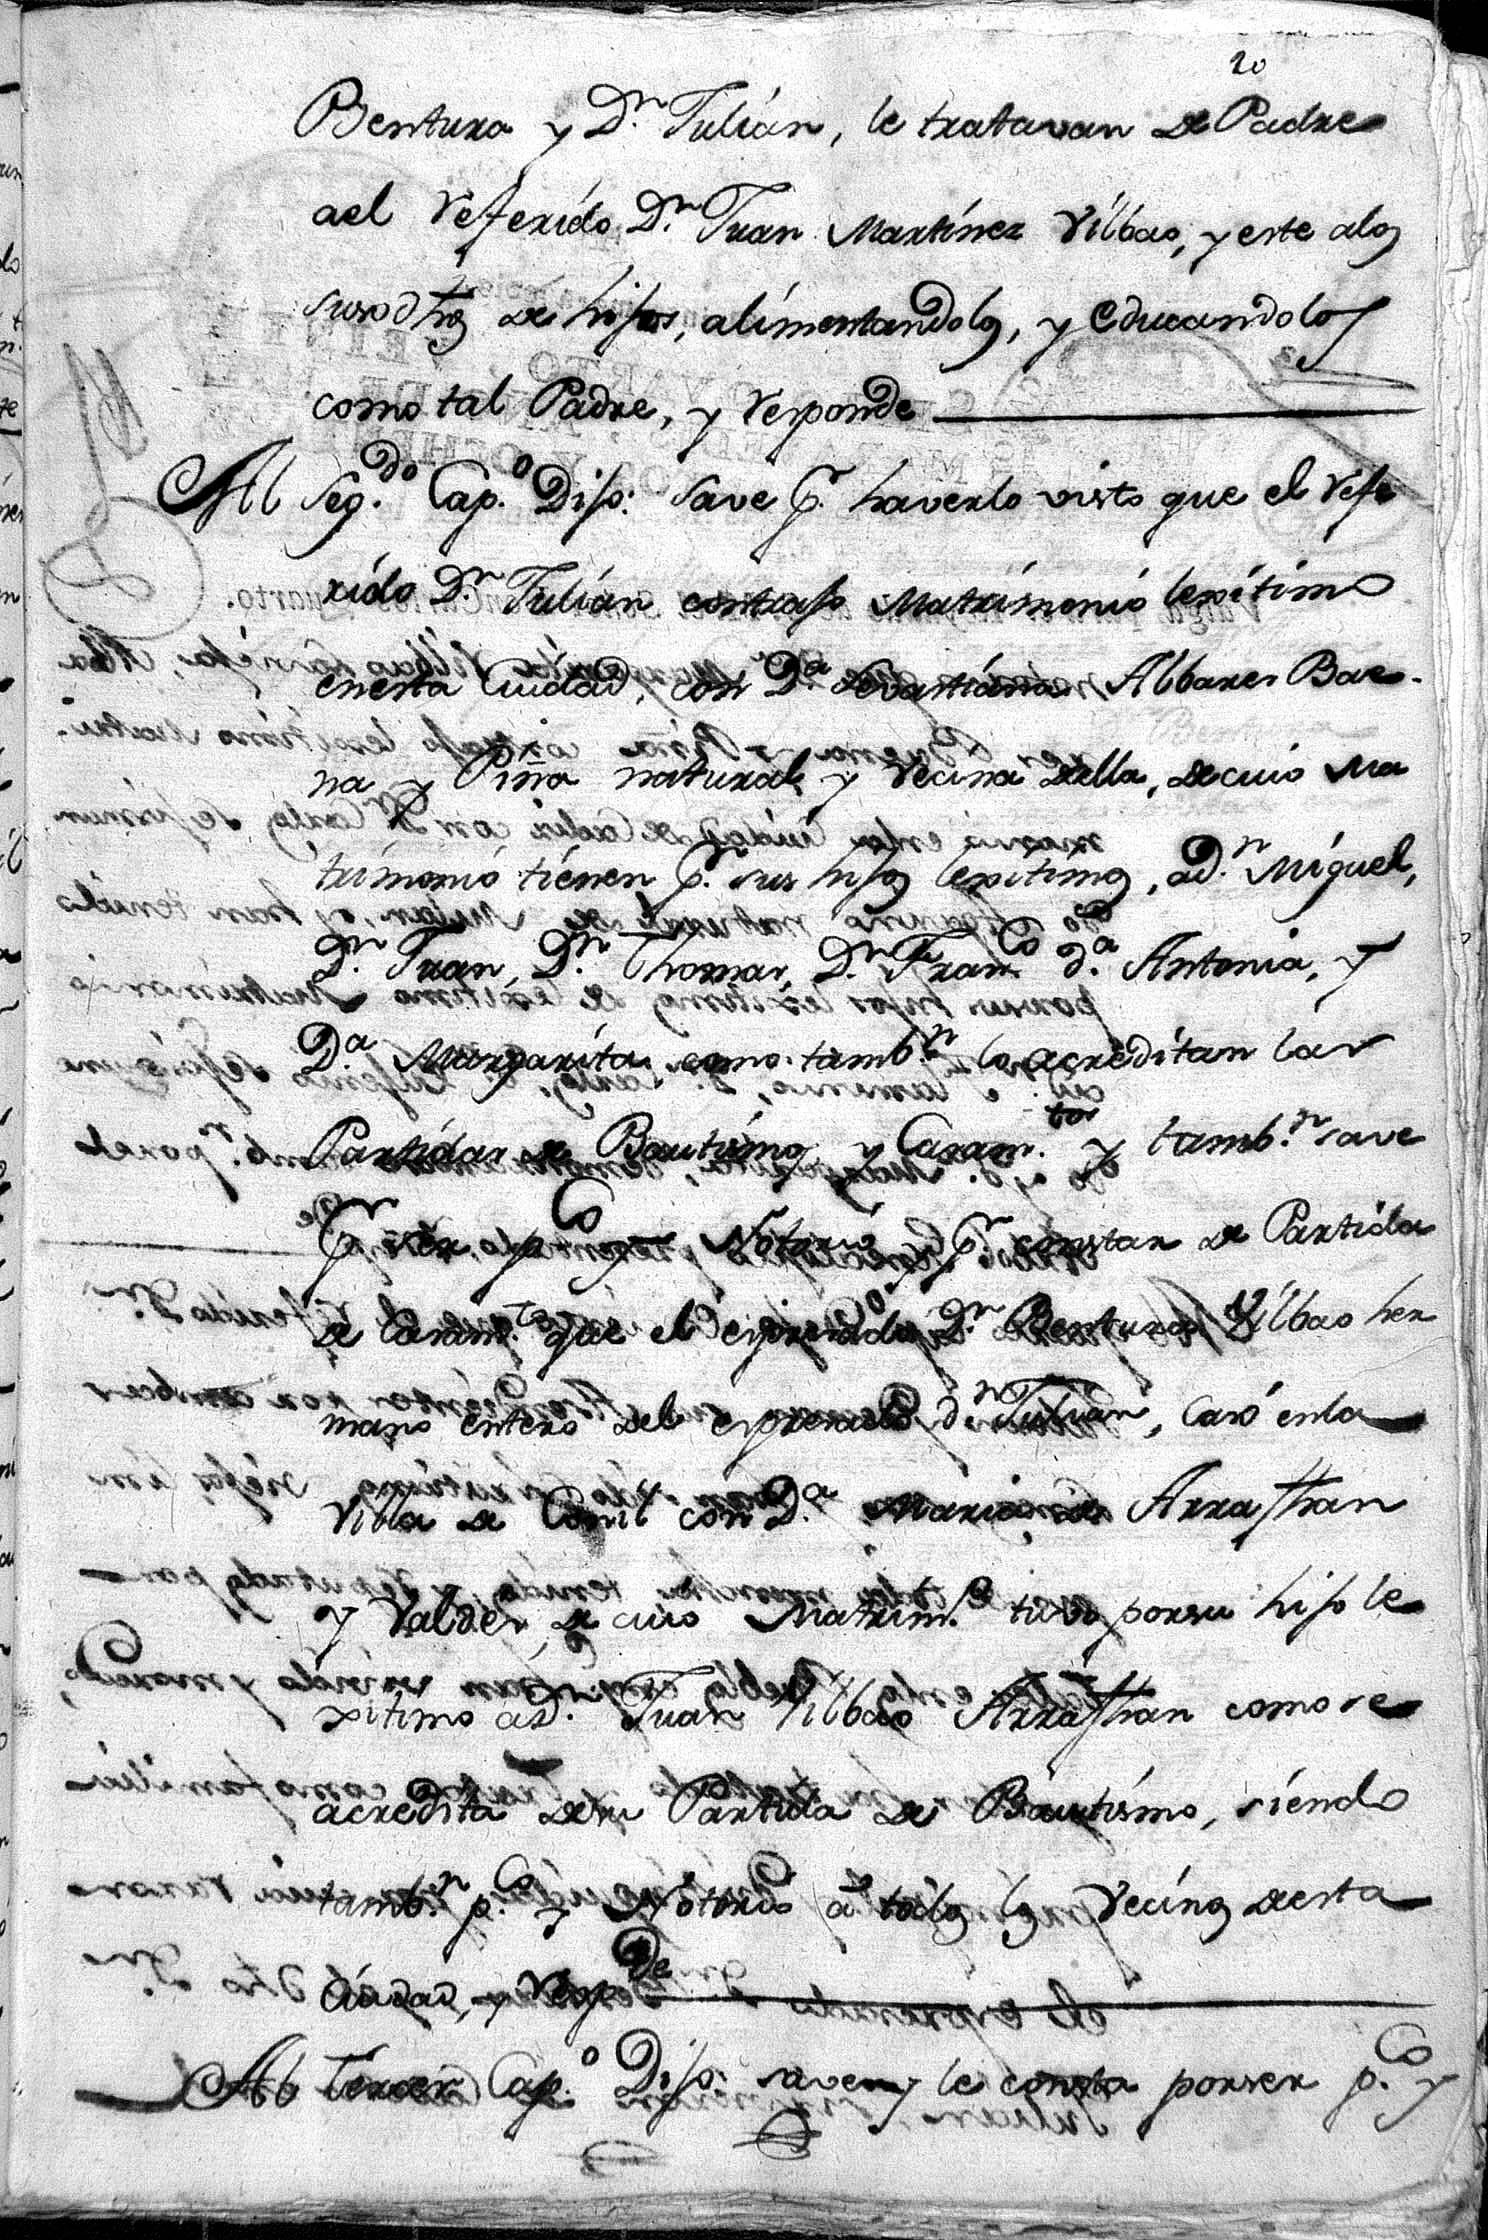 20
Bentura y Dn. Julián, le tratavan de Padre
ael referido Dn. Juan Martínez Vilbao, y este alos
susodhos de hijos, alimentandolos, y educandolos
como tal Padre, y responde
Al Seg.do Cap.o Dijo: save pr. haverlo visto que el refe
rido Dn. Julián contrajo Matrimonio lexítimo
enesta Ciudad, con Da. Sevastiána Albares Bae-
na y Piña natural, y vecina della, de cuio Ma
trimonio tiénen pr. sus hijos lexitimos, a dn. Miguel,
Dn. Juan, Dn. Thomas, Dn. Franco. da. Antonia, y
Da. Margarita como tambn. lo acreditan las
Partidas de Bautismo y Casam.tos y tambn. save
pr. ser pco. y Notorio, y pr. constar de Partida
de Casam.to que el expresado Dn. Bentura Vilbao her
mano entero del expresado dn. Julián, Casó enla
Villa de Conil con Da. Maria de Arrafhan
y Valdes, de cuio Matrim.o tubo porsu hijo le
xitimo a D. Juan Vilbao Arrafhan como se
acredita desu Partida de Bautismo, siendo
tambn. pco. y Notorio a todos los vecinos desta
Ciudad, y respde
Al Tercer Cap.o Dijo: save y le consta porser pco. y